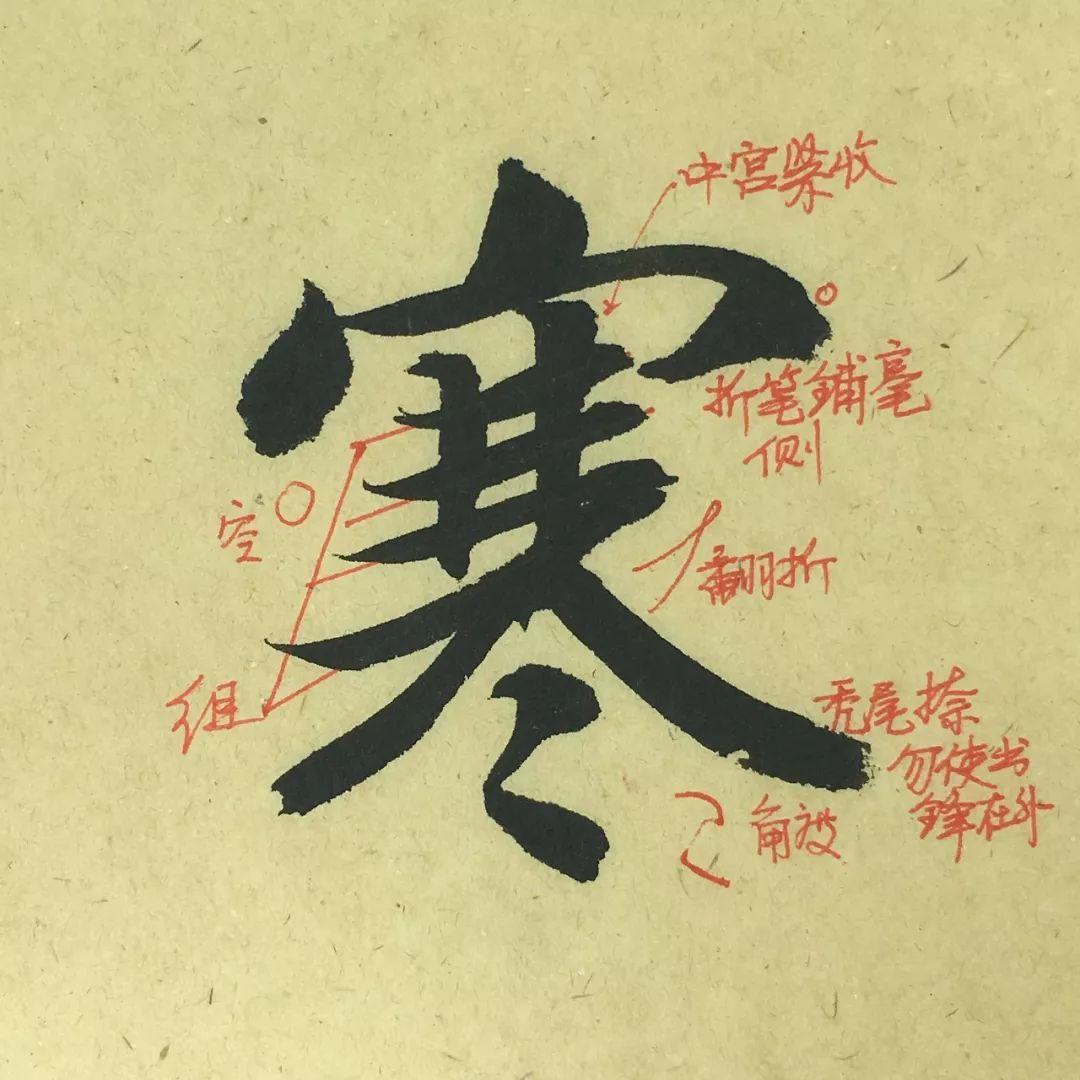 寒
中宫紧收
折笔铺毫
侧
空
翻折
组
秃尾捺
勿使出
锋在外